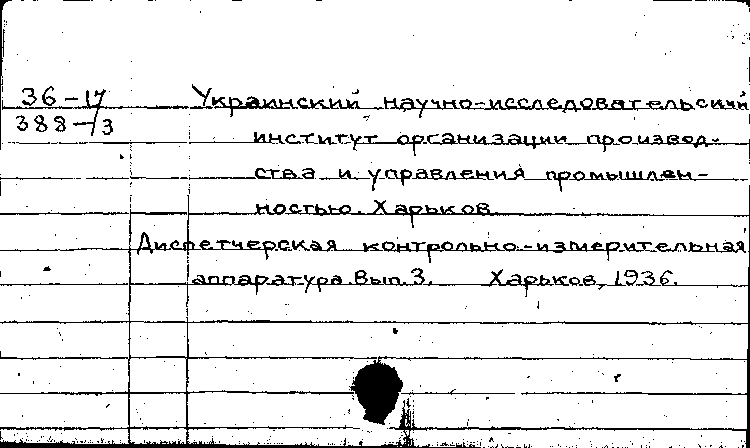 36-17
388-/3
Украинский научно-исследовательский
институт организации производ-
ства и управления промышлен-
ностью. Харьков
Диспетчерская контрольно-измерительная
аппаратура. Вып. 3. Харьков, 1936.